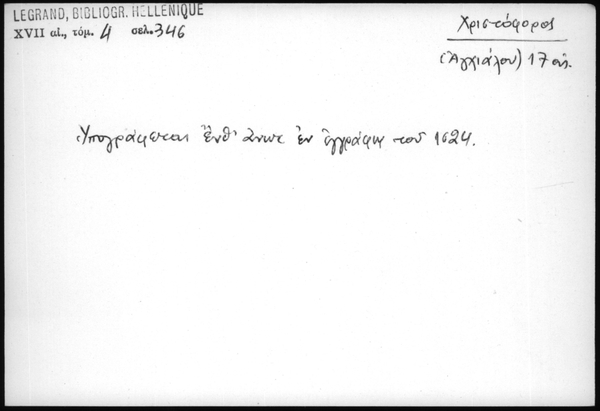 LEGRAND, BIBLIOGR. HELLENIQUE
XVII αἰ., τόμ. 4 σελ. 346
Χριστόφορος
(Ἀγχιάλου) 17 αἰ.
Ὑπογράφεται ἔνθ' ἄνωτ ἐν ἐγγράφῳ τοῦ 1624.